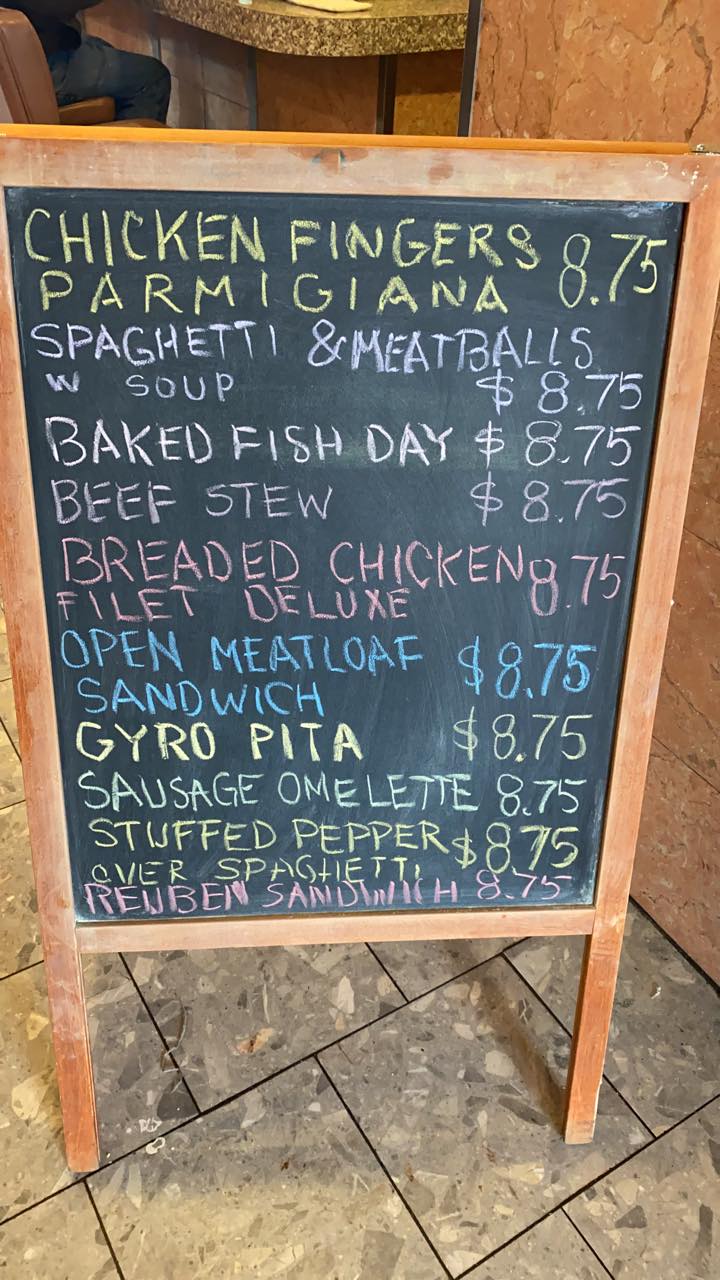 CHICKEN FINGERS 8.75
PARMIGIANA
SPAGHETTI & MEATBALLS
W SOUP $ 8.75
BAKED FISH DAY $ 8.75
BEEF STEW $ 8.75
BREADED CHICKEN 8.75
FILET DELUXE
OPEN MEATLOAF $8.75
SANDWICH
GYRO PITA $8.75
SAUSAGE OMELETTE 8.75
STUFFED PEPPER $8.75
OVER SPAGHETTI
REUBEN SANDWICH 8.75